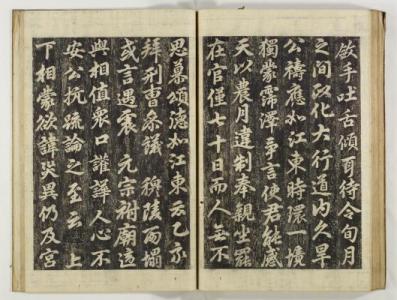 斂手吐舌傾耳待令旬月
之間政化大行道內久旱
公禱應如江東時環一境
獨蒙霈澤爭言使君能感
天以農月違制奉親坐罷
在官僅七十日而人無不
思慕頌德如江東云乙亥
拜刑曹參議 穆陵雨塌
或言遇震 元宗祔廟適
與相值眾口讙譁人心不
安公抗疏論之至云 上
下相蒙欲諱災異仍及宮